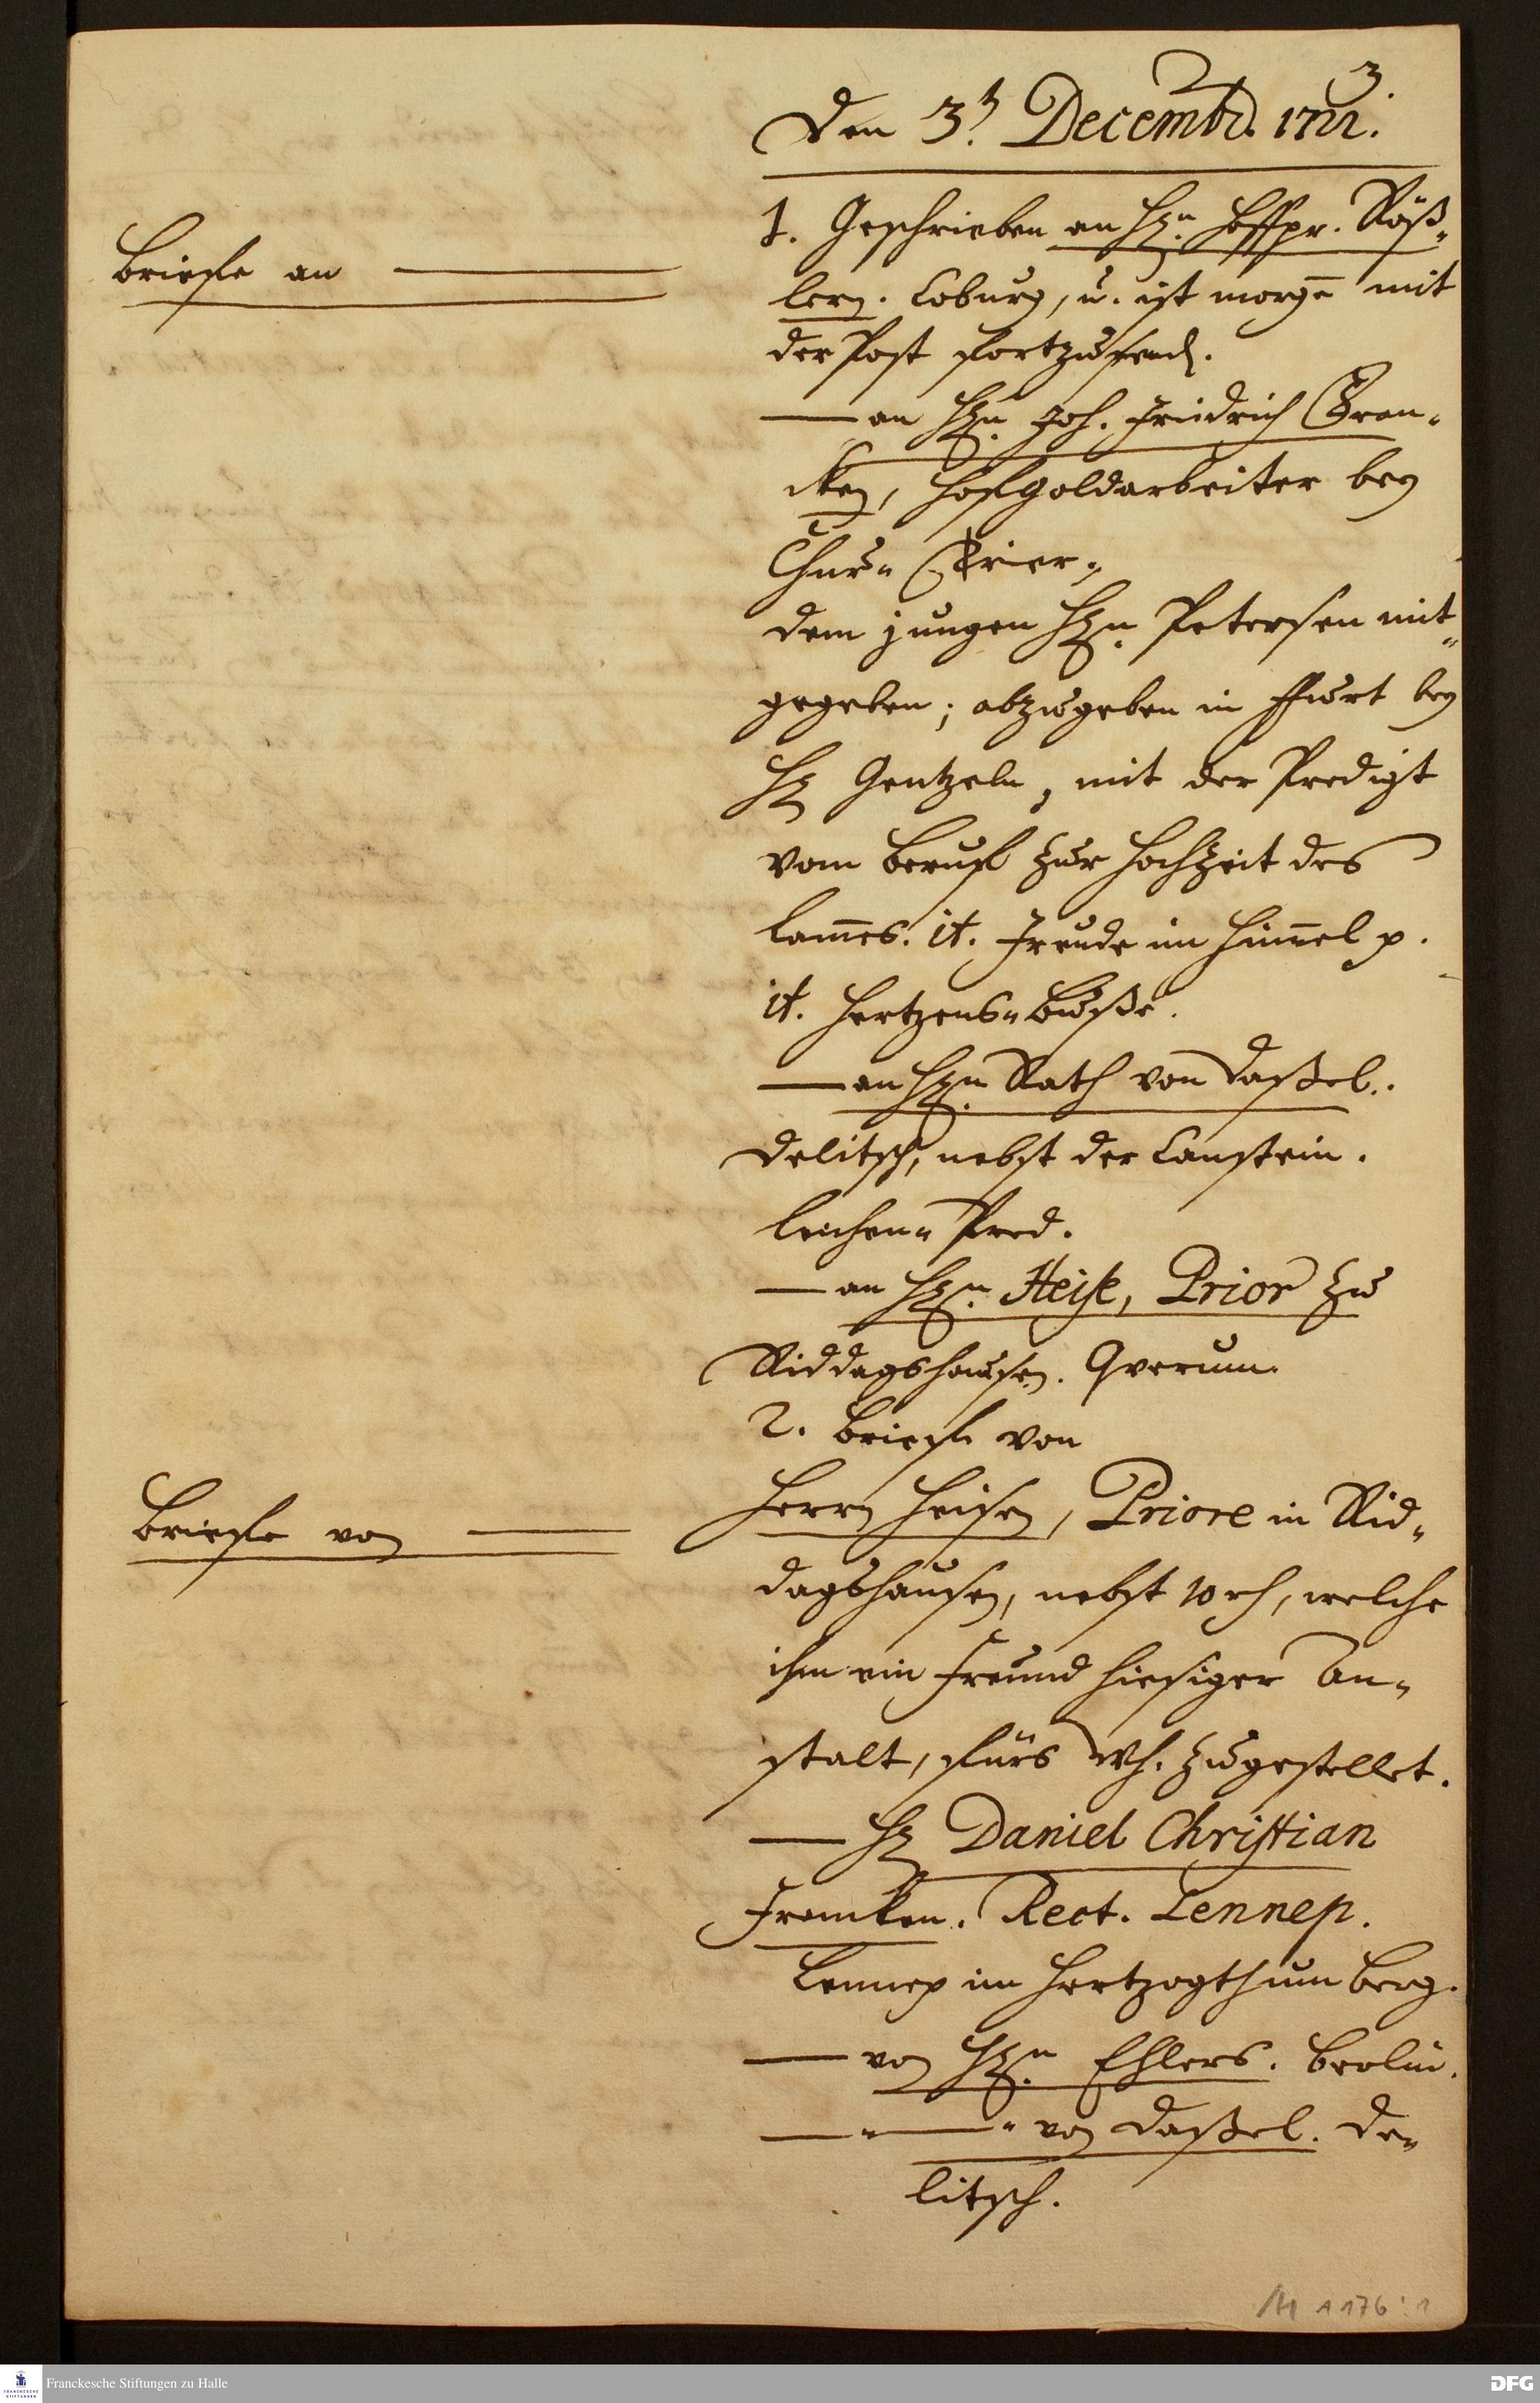 3
Den 3t. Decembr. 1722.
Briefe an
1. Geschrieben an Hrn. Hoffpr. Röß-
lern. Coburg, u. ist morgē mit
der Post fortzusend.
— an Hrn. Joh. Friedrich Gran-
cken, Hofgoldarbeiter bey
Chur- Trier.
dem jungen Hrn. Petersen mit-
gegeben; abzugeben in Ffurt bey
Hr Gentzeln, mit der Predigt
vom Beruf zur Hochzeit des
Lam̄es. it. Freude im Him̄el p.
it. Hertzens-Buße.
— an Hrn. Rath von Daßel.
Delitsch, nebst der Canstein.
Leichen- Pred.
— an Hrn. Heise, Prior zu
Riddagshausen. Qverum.
2. Briefe von
Briefe von
Herrn Heisen, Priore in Rid-
dagshausen, nebst 10 rh, welche
ihm ein Freund hiesiger An-
stalt, fürs Wh. zugestellet.
— Hr Daniel Christian
Francken. Rect. Lennep.
Lennep im Hertzogthum Berg.
— von Hrn. Ehlers. Berlin.
— " — " von Daßel. De-
litsch.
A 176 : 1
Franckesche Stiftungen zu Halle
DFG